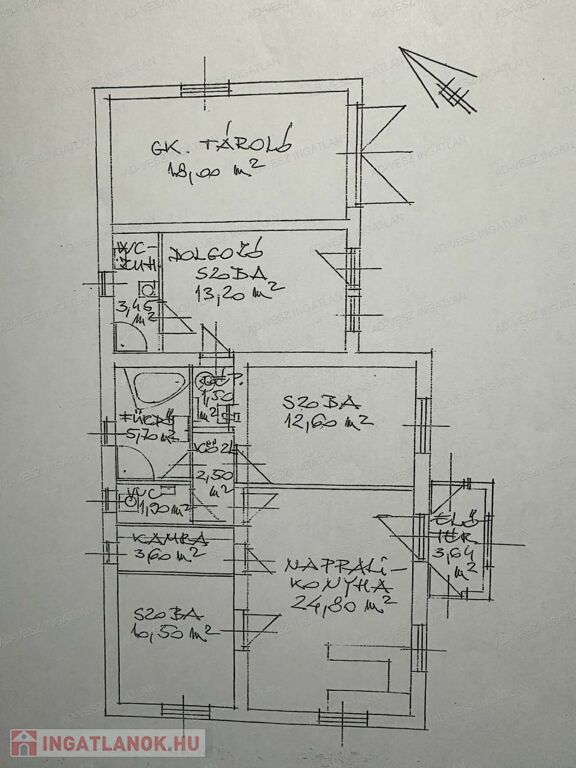 GK. TÁROLÓ
18,00 m²
WC-
ZUH
3,45
m²
DOLGOZÓ
SZOBA
13,20 m²
1,50
m²
SZOBA
12,60 m²
FÜRDŐ
5,70 m²
KÖZL
2,50
m²
WC
1,20 m²
ELŐ
TÉR
3,64
m²
KAMRA
3,60 m²
NAPPALI-
KONYHA
24,80 m²
SZOBA
10,50 m²
INGATLANOK.HU